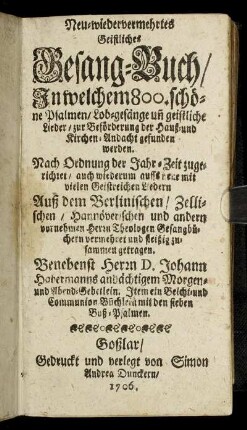 Neu-wiedervermehrtes
Geistliches
Gesang-Buch/
In welchem 800. schö-
ne Psalmen/ Lobgesänge uñ geistliche
Lieder/ zur Beförderung der Hauß-und
Kirchen-Andacht gefunden
werden.
Nach Ordnung der Jahr-Zeit zuge-
richtet/ auch wiederum auffs neue mit
vielen Geistreichen Liedern
Auß dem Berlinischen/ Zelli-
schen/ Hannöverschen und andern
vornehmen Herrn Theologen Gesangbü-
chern vermehret und fleißig zu-
sammen getragen.
Benebenst Herrn D. Johann
Habermanns andächtigem Morgen-
und Abend-Gebetlein. Item ein Beicht-und
Communion Büchlein mit den sieben
Buß-Psalmen.
Goßlar/
Gedruckt und verlegt von Simon
Andrea Dunckern/
1706.